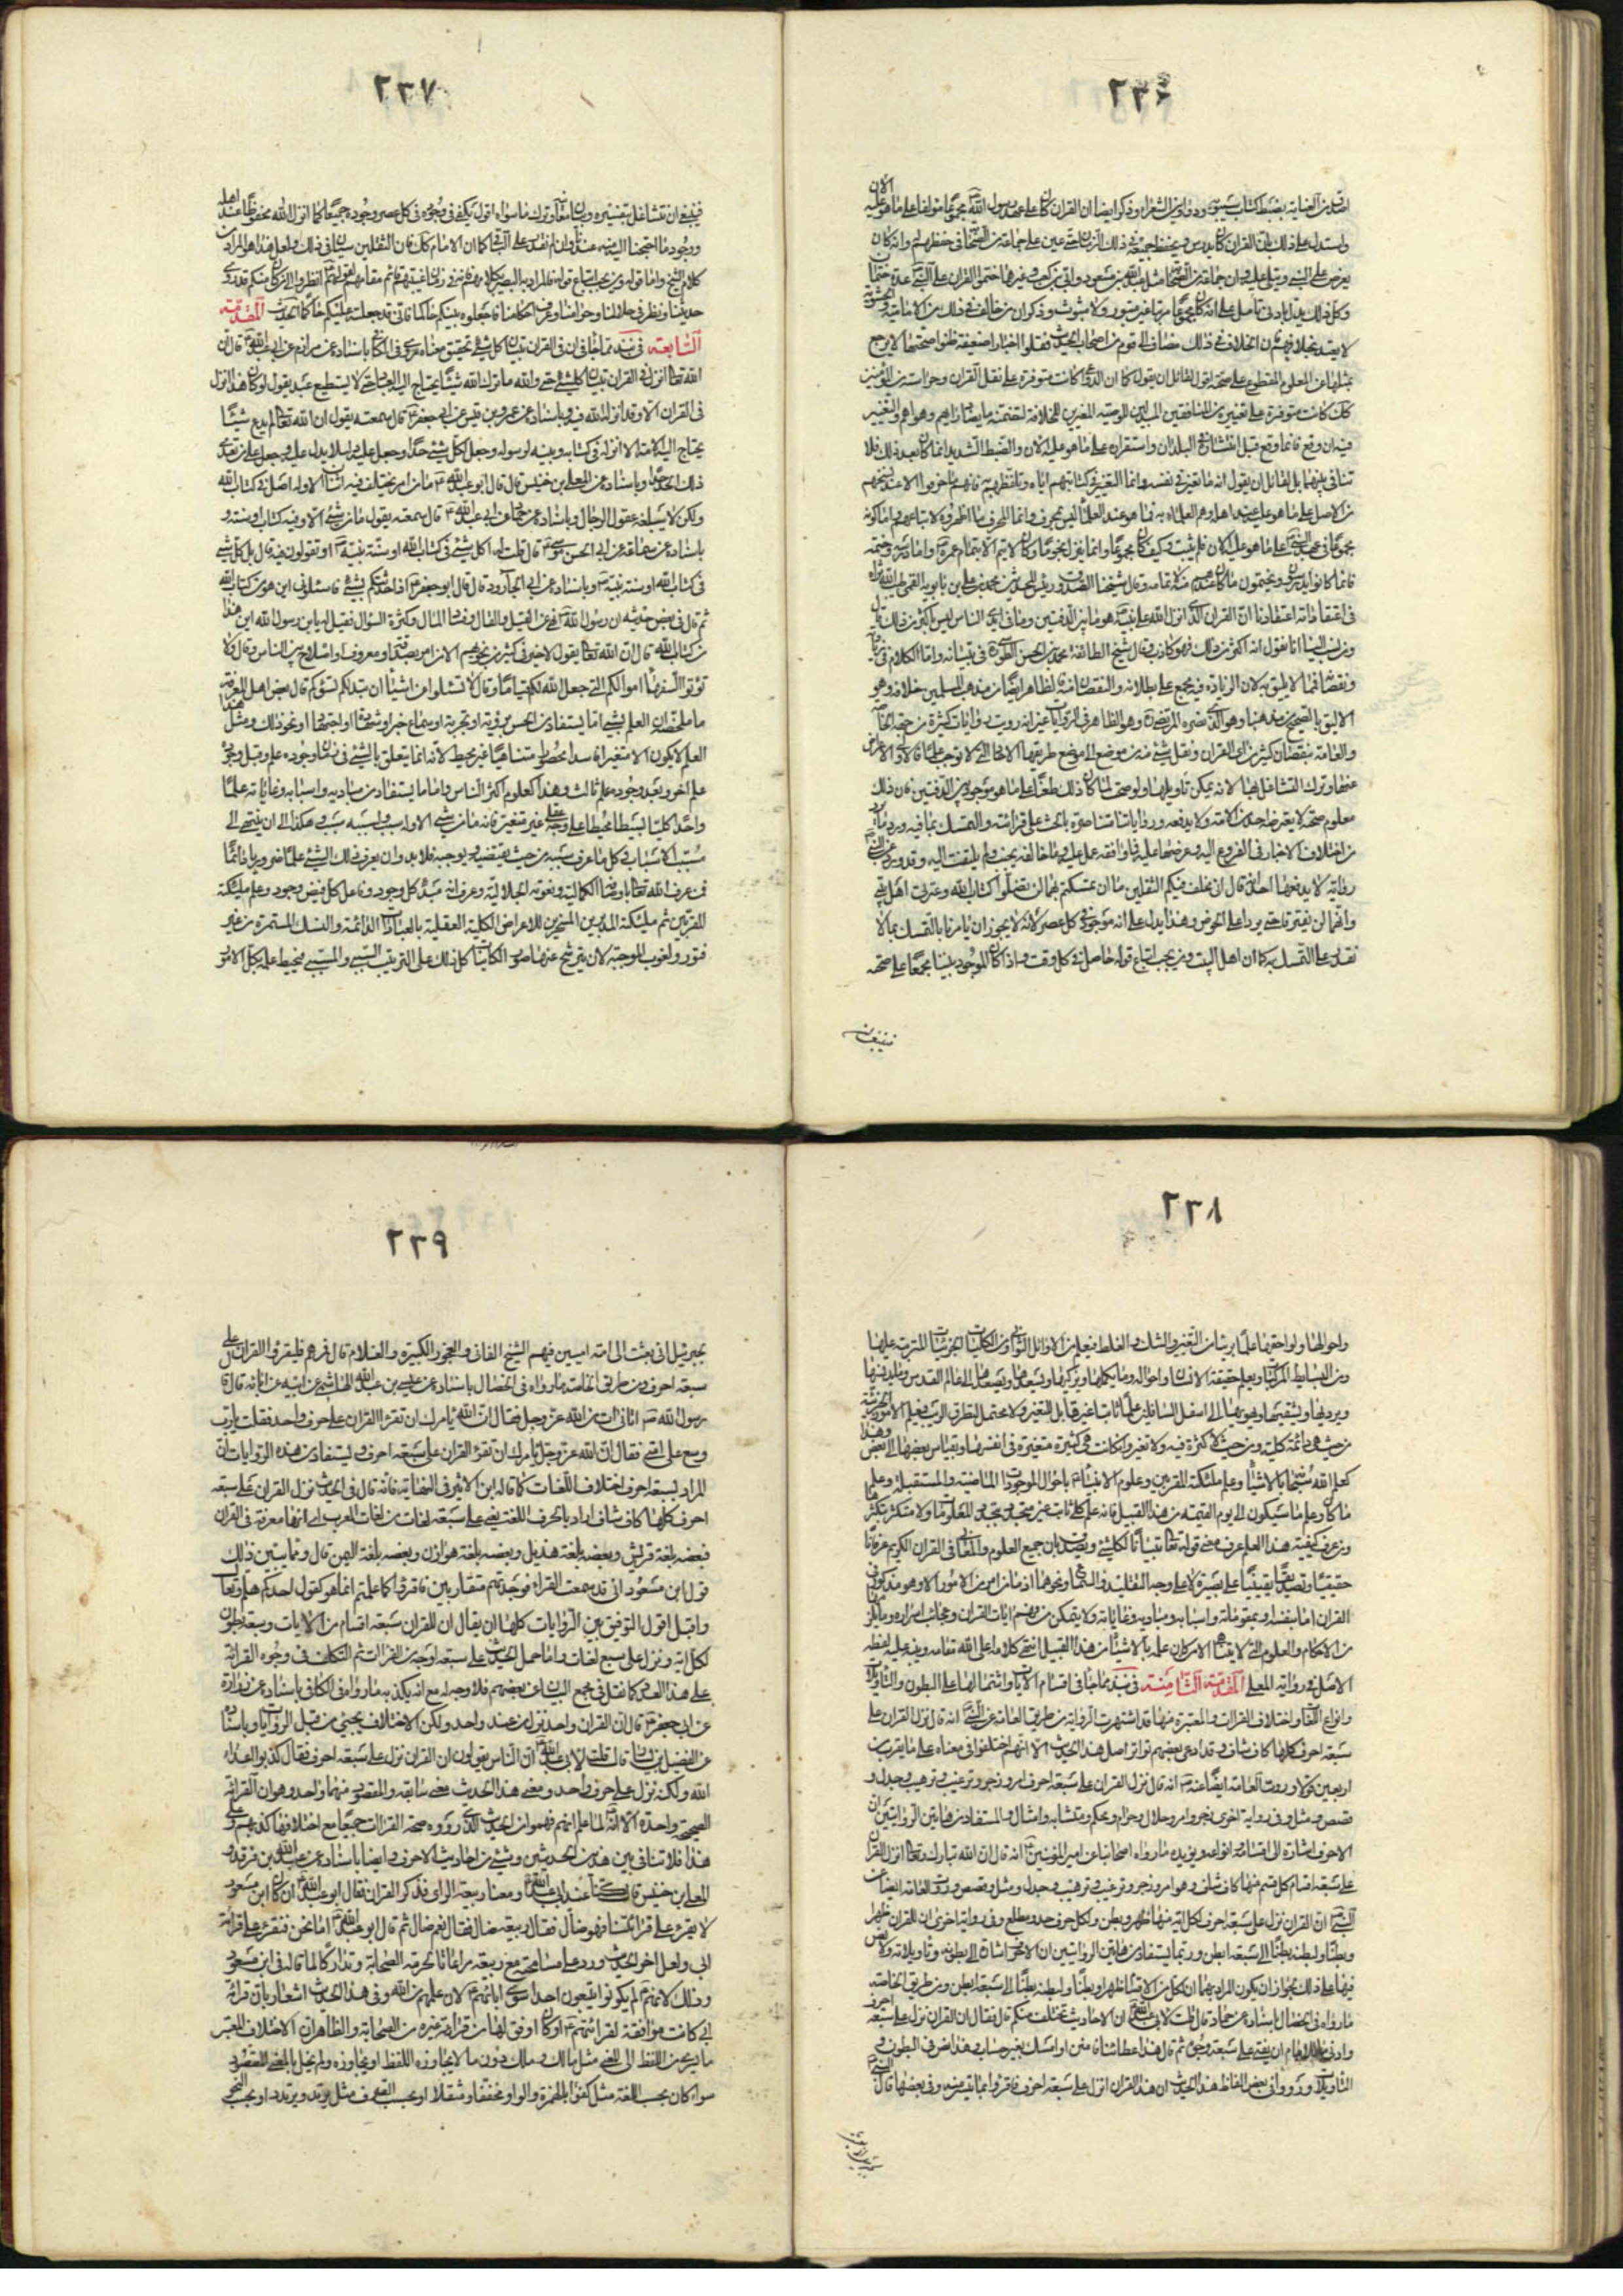 ٢٣٦
اصدق من العناية بضبط كتاب سيبويه ودواوين الشعراء وذكر ايضا ان القران كان على عهد رسول الله مجموعا مولفا على ما هو عليه الان
واستدل على ذلك بان القران كان يدرس ويحفظ جميعه في ذلك الزمان حتى عين على جماعة من الصحابة في حفظهم له وانه كان
يعرض على النبي ويتلى عليه وان جماعة من الصحابة مثل عبد الله بن مسعود وابي بن كعب وغيرهما ختموا القران على النبي عدة ختمات
وكل ذلك يدل بادنى تامل على انه كان مجموعا مرتبا غير مبتور ولا مبثوث وذكر ان من خالف في ذلك من الامامية والحشوية
لا يعتد بخلافهم فان الخلاف في ذلك مضاف الى قوم من اصحاب الحديث نقلوا اخبارا ضعيفة ظنوا صحتها لا يرجع
بمثلها عن المعلوم المقطوع على صحته اقول لقائل ان يقول كما ان الدواعي كانت متوفرة على نقل القران وحراسته من المؤمنين
كك كانت متوفرة على تغييره من المنافقين المبدلين للوصية المغيرين للخلافة لتضمنه ما يضاد رايهم وهواهم والتغيير
فيه ان وقع فانما وقع قبل انتشاره في البلدان واستقراره على ما هو عليه الان والضبط الشديد انما كان بعد ذلك فلا
تنافي بينهما بل لقائل ان يقول انه ما تغير في نفسه وانما التغيير في كتابتهم اياه وتلفظهم به فانهم ما حرفوا الا عند نسخهم
من الاصل على ما هو عليه عند اهله وهم العلماء به فما هو عند العلماء به ليس بمحرف وانما المحرف ما اظهروه لاتباعهم واما كونه
مجموعا في عهد النبي على ما هو عليه الان فلم يثبت وكيف كان مجموعا وانما كان ينزل نجوما وكان لا يتم الا بتمام عمره واما درسه وختمه
فانما كانوا يدرسون ويختمون ما كان عندهم منه لا تمامه وقال شيخنا الصدوق رئيس المحدثين محمد بن علي بن بابويه القمي طيب الله ثراه
في اعتقاداته اعتقادنا ان القران الذي انزل الله على نبيه هو ما بين الدفتين وما في ايدي الناس ليس باكثر من ذلك قال
ومن نسب الينا انا نقول انه اكثر من ذلك فهو كاذب وقال شيخ الطائفة محمد بن الحسن الطوسي ره في تبيانه واما الكلام في زيادته
ونقصانه فمما لا يليق به لان الزيادة فيه مجمع على بطلانه والنقصان منه فالظاهر ايضا من مذهب المسلمين خلافه وهو
الاليق بالصحيح من مذهبنا وهو الذي نصره المرتضى ره وهو الظاهر في الروايات غير انه رويت روايات كثيرة من جهة الخاصة
والعامة بنقصان كثير من اي القران ونقل شيء منه من موضع الى موضع طريقها الاحاد التي لا توجب علما فالاولى الاعراض
عنها وترك التشاغل بها لانه يمكن تاويلها ولو صحت لما كان ذلك طعنا على ما هو موجود بين الدفتين فان ذلك
معلوم صحته لا يعترضه احد من الامة ولا يدفعه ورواياتنا متناصرة بالحث على قرائته والتمسك بما فيه ورد ما يرد
من اختلاف الاخبار في الفروع اليه وعرضها عليه فما وافقه عمل عليه وما خالفه يجنب ولم يلتفت اليه وقد ورد عن النبي
رواية لا يدفعها احد انه قال اني مخلف فيكم الثقلين ما ان تمسكتم بهما لن تضلوا كتاب الله وعترتي اهل بيتي
وانهما لن يفترقا حتى يردا على الحوض وهذا يدل على انه موجود في كل عصر لانه لا يجوز ان يامرنا بالتمسك بما لا
نقدر على التمسك به كما ان اهل البيت ومن يجب اتباع قوله حاصل في كل وقت واذا كان الموجود بيننا مجمعا على صحته
فينبغي ان
٢٣٧
فينبغي ان نتشاغل بتفسيره وبيان معانيه وترك ما سواه اقول يكفي في وجوده في كل عصر وجوده جميعا كما انزل الله محفوظا عند اهله
ووجود ما احتجنا اليه منه عندنا وان لم نقدر على الباقي كما ان الامام كك فان الثقلين سيان في ذلك ولعل هذا هو المراد من
كلام الشيخ واما قوله ومن يجب اتباع قوله فالمراد به البصير بكلامه فانه في زمان غيبتهم قائم مقامهم لقولهم انظروا الى من كان منكم قد روى
حديثنا ونظر في حلالنا وحرامنا وعرف احكامنا فاجعلوه بينكم حاكما فاني قد جعلته عليكم حاكما الحديث المقدمة
السابعة في نبذ مما جاء في ان في القران تبيان كل شيء وتحقيق معناه روى في الكافي باسناده عن مرازم عن ابي عبد الله قال ان
الله تعالى انزل في القران تبيان كل شيء حتى والله ما ترك الله شيئا يحتاج اليه العباد حتى لا يستطيع عبد يقول لو كان هذا انزل
في القران الا وقد انزله الله فيه وباسناده عن عمرو بن قيس عن ابي جعفر قال سمعته يقول ان الله تعالى لم يدع شيئا
يحتاج اليه الامة الا انزله في كتابه وبينه لرسوله وجعل لكل شيء حدا وجعل عليه دليلا يدل عليه وجعل على من تعدى
ذلك الحد حدا وباسناده عن المعلى بن خنيس قال قال ابو عبد الله ما من امر يختلف فيه اثنان الا وله اصل في كتاب الله
ولكن لا يبلغه عقول الرجال وباسناده عن حماد عن ابي عبد الله قال سمعته يقول ما من شيء الا وفيه كتاب او سنة و
باسناده عن سماعة عن ابي الحسن موسى قال قلت له اكل شيء في كتاب الله او سنة نبيه او تقولون فيه قال بل كل شيء
في كتاب الله او سنة نبيه وباسناده عن ابي الجارود قال قال ابو جعفر اذا حدثتكم بشيء فاسئلوني اين هو من كتاب الله
ثم قال في بعض حديثه ان رسول الله نهى عن القيل والقال وفساد المال وكثرة السؤال فقيل له يا ابن رسول الله اين هذا
من كتاب الله قال ان الله تعالى يقول لا خير في كثير من نجويهم الا من امر بصدقة او معروف او اصلاح بين الناس وقال ولا
تؤتوا السفهاء اموالكم التي جعل الله لكم قياما وقال لا تسئلوا عن اشياء ان تبد لكم تسؤكم قال بعض اهل المعرفة
ما ملخصه ان العلم بالشيء اما يستفاد من الحس برؤية او تجربة او سماع خبر او شهادة او اجتهاد او نحو ذلك ومثل هذا
العلم لا يكون الا متغيرا فاسدا محصورا متناهيا غير محيط لانه انما يتعلق بالشيء في زمان وجوده علم وقبل وجوده
علم اخر وبعد وجوده علم ثالث وهذا كعلوم اكثر الناس واما ما يستفاد من مباديه واسبابه وغاياته علما
واحدا كليا بسيطا محيطا على وجه عقلي غير متغير فانه ما من شيء الا وله سبب ولسببه سبب وهكذا الى ان ينتهي الى
مسبب الاسباب وكل ما عرف سببه من حيث يقتضيه ويوجبه فلا بد وان يعرف ذلك الشيء علما ضروريا دائما
فمن عرف الله تعالى باوصافه الكمالية ونعوته الجلالية وعرف انه مبدء كل وجود وفاعل كل فيض وجود وعلم ملئكته
المقربين ثم ملئكته المدبرين المسخرين للاغراض الكلية العقلية بالعبادات الدائمة والنسك المستمرة من غير
فتور ولغوب الموجبة لان يترشح عنها صور الكائنات كل ذلك على الترتيب السببي والمسببي فيحيط علمه بكل الامور
٢٣٨
واحوالها ولواحقها علما بريئا من التغير والشك والغلط فيعلم من الاوائل الثواني ومن الكليات الجزئيات المترتبة عليها
ومن البسائط المركبات ويعلم حقيقة الانسان واحواله وما يكملها ويزكيها ويسعدها ويصعدها الى عالم القدس وما يدنسها
ويرديها ويشقيها ويهويها الى اسفل السافلين علما ثابتا غير قابل للتغيير ولا محتمل لتطرق الريب فيعلم الامور الجزئية
من حيث هي دائمة كلية ومن حيث لا كثرة فيه ولا تغير وان كانت هي كثيرة متغيرة في انفسها وبقياس بعضها الى بعض وهذا
كعلم الله سبحانه بالاشياء وعلم ملئكته المقربين وعلوم الانبياء باحوال الموجودات الماضية والمستقبلة وعلم
ما كان وعلم ما سيكون الى يوم القيمة من هذا القبيل فانه علم كلي ثابت غير متجدد بتجدد المعلومات ولا متكثر بتكثرها
ومن عرف كيفية هذا العلم عرف معنى قوله تعالى تبيانا لكل شيء ويصدق بان جميع العلوم والمعاني في القران الكريم عرفانا
حقيقيا وتصديقا يقينيا على بصيرة لا على وجه التقليد والسماع ونحوهما اذ ما من امر من الامور الا وهو مذكور في
القران اما بنفسه او بمقوماته واسبابه ومباديه وغاياته ولا يتمكن من فهم ايات القران وعجائب اسراره وما يلزمها
من الاحكام والعلوم التي لا يتناهى الا من كان علمه بالاشياء من هذا القبيل انتهى كلامه اعلى الله مقامه وينبه عليه لفظة
الاصل في رواية المعلى المقدمة الثامنة في نبذ مما جاء في اقسام الايات واشتمالها على البطون والتاويلات
وانواع اللغات واختلاف القراات والمعتبرة منها قد اشتهرت الرواية من طريق العامة عن النبي انه قال نزل القران على
سبعة احرف كلها كاف شاف وقد ادعى بعضهم تواتر اصل هذا الحديث الا انهم اختلفوا في معناه على ما يقرب من
اربعين قولا وروت العامة ايضا عنه انه قال نزل القران على سبعة احرف امر وزجر وترغيب وترهيب وجدل و
قصص ومثل وفي رواية اخرى زجر وامر وحلال وحرام ومحكم ومتشابه وامثال والمستفاد من هاتين الروايتين ان
الاحرف اشارة الى اقسامه وانواعه ويؤيده ما رواه اصحابنا عن امير المؤمنين انه قال ان الله تبارك وتعالى انزل القران
على سبعة اقسام كل قسم منها كاف شاف وهو امر وزجر وترغيب وترهيب وجدل ومثل وقصص وروت العامة ايضا عن
النبي ان القران نزل على سبعة احرف لكل اية منها ظهر وبطن ولكل حرف حد ومطلع وفي رواية اخرى ان للقران ظهرا
وبطنا ولبطنه بطنا الى سبعة ابطن وربما يستفاد من هاتين الروايتين ان الاحرف اشارة الى بطونه وتاويلاته ولا نص
فيهما على ذلك لجواز ان يكون المراد بهما ان لكل من الاقسام ظهرا وبطنا ولبطنه بطنا الى سبعة ابطن ومن طريق الخاصة
ما رواه في الخصال باسناده عن حماد قال قلت لابي عبد الله ان الاحاديث تختلف منكم قال فقال ان القران نزل على سبعة احرف
وادنى ما للامام ان يفتي على سبعة وجوه ثم قال هذا عطاؤنا فامنن او امسك بغير حساب وهذا نص في البطون و
التاويلات ورووا في بعض الفاظ هذا الحديث ان هذا القران انزل على سبعة احرف فاقرؤا ما تيسر منه وفي بعضها قال النبي
٢٣٩
لجبرئيل اني بعثت الى امة اميين فيهم الشيخ الفاني والعجوز الكبيرة والغلام قال فمرهم فليقرؤا القران على
سبعة احرف ومن طريق الخاصة ما رواه في الخصال باسناده عن عيسى بن عبد الله الهاشمي عن ابيه عن ابائه قال قال
رسول الله اتاني ات من الله عز وجل فقال ان الله يامرك ان تقرء القران على حرف واحد فقلت يا رب
وسع على امتي فقال ان الله عز وجل يامرك ان تقرء القران على سبعة احرف ويستفاد من هذه الروايات ان
المراد بسبعة احرف اختلاف اللغات كما قاله ابن الاثير في النهاية فانه قال في الحديث نزل القران على سبعة
احرف كلها كاف شاف اراد بالحرف اللغة يعني على سبعة لغات من لغات العرب اي انها مفرقة في القران
فبعضه بلغة قريش وبعضه بلغة هذيل وبعضه بلغة هوازن وبعضه بلغة اليمن قال ومما يبين ذلك
قول ابن مسعود اني قد سمعت القراء فوجدتهم متقاربين فاقرؤا كما علمتم انما هو كقول احدكم هلم وتعال
واقبل اقول التوفيق بين الروايات كلها ان يقال ان للقران سبعة اقسام من الايات وسبعة بطون
لكل اية ونزل على سبع لغات واما حمل الحديث على سبعة اوجه من القراات ثم التكلف في وجوه القرائة
على هذا العدد كما نقل في مجمع البيان عن بعضهم فلا وجه له مع انه يكذبه ما رواه في الكافي باسناده عن زرارة
عن ابي جعفر قال ان القران واحد نزل من عند واحد ولكن الاختلاف يجيء من قبل الرواة وباسناده
عن الفضيل بن يسار قال قلت لابي عبد الله ان الناس يقولون ان القران نزل على سبعة احرف فقال كذبوا اعداء
الله ولكنه نزل على حرف واحد ومعنى هذا الحديث معنى سابقه والمقصود منهما واحد وهو ان القرائة
الصحيحة واحدة الا انه لما علم انهم فهموا من الحديث الذي رووه صحة القراات جميعا مع اختلافها كذبهم وعلى
هذا فلا تنافي بين هذين الحديثين وشيء من احاديث الاحرف وايضا باسناده عن عبد الله بن فرقد و
المعلى بن خنيس قالا كنا عند ابي عبد الله ومعنا ربيعة الراي فذكر القران فقال ابو عبد الله ان كان ابن مسعود
لا يقرء على قرائتنا فهو ضال فقال ربيعة ضال فقال نعم ضال ثم قال ابو عبد الله اما نحن فنقرء على قرائة
ابي ولعل اخر الحديث ورد على المسامحة مع ربيعة مراعاة لحرمة الصحابة وتداركا لما قاله في ابن مسعود
وذلك لانهم لم يكونوا يتبعون احدا سوى ابائهم لان علمهم من الله وفي هذا الحديث اشعار بان قرائة
ابي كانت موافقة لقرائتهم او كانت اوفق لها من قرائة غيره من الصحابة والظاهر ان الاختلاف المعتبر
ما يسري من اللفظ الى المعنى مثل مالك وملك دون ما لا يجاوز اللفظ او يجاوزه ولم يخل بالمعنى المقصود
سواء كان بحسب اللغة مثل كفوا بالهمزة والواو ومخففا ومثقلا او بحسب الصرف مثل يرتد ويرتدد او بحسب النحو